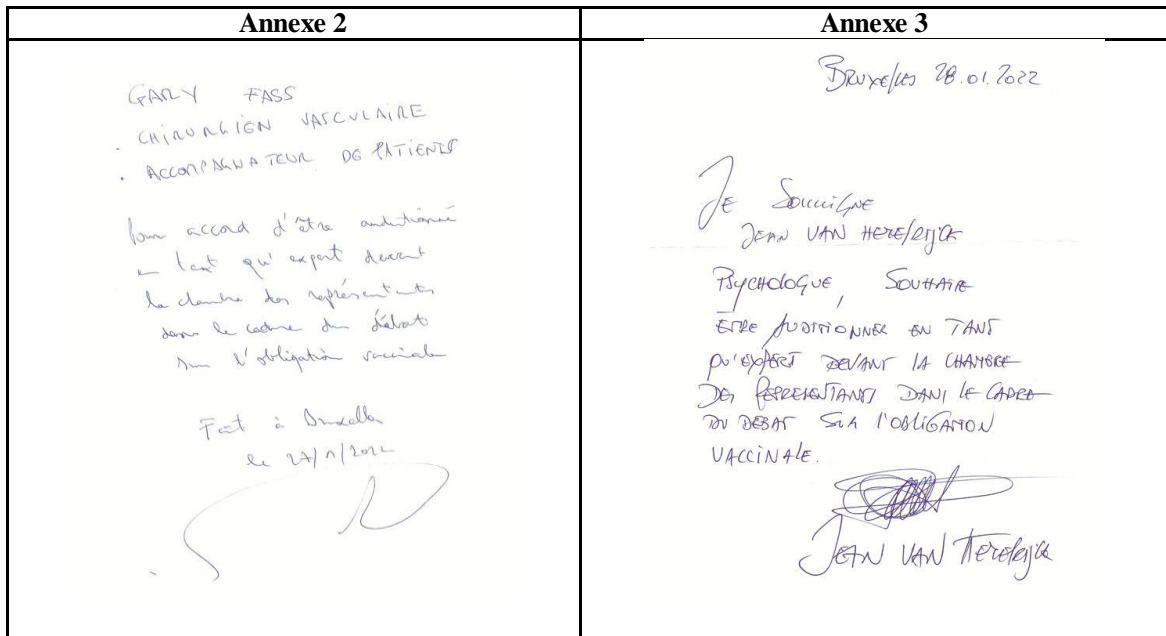 Annexe 2
GARY FASS
. CHIRURGIEN VASCULAIRE
. ACCOMPAGNATEUR DE PATIENTS
Pour accord d'être auditionné
en tant qu'expert devant
la chambre des représentants
dans le cadre du débat
sur l'obligation vaccinale
Fait à Bruxelles
le 27/1/2022
Annexe 3
BRUXElles 28.01.2022
JE SOUSSIGNE
JEAN VAN
PSYCHOLOGUE, SOUHAITE
ETRE AUDITIONNER EN TANT
QU'EXPERT DEVANT LA CHAMBRE
DES REPRESENTANTS DANS LE CADRE
DU DEBAT SUR l'OBLIGATION
VACCINALE.
JEAN VAN